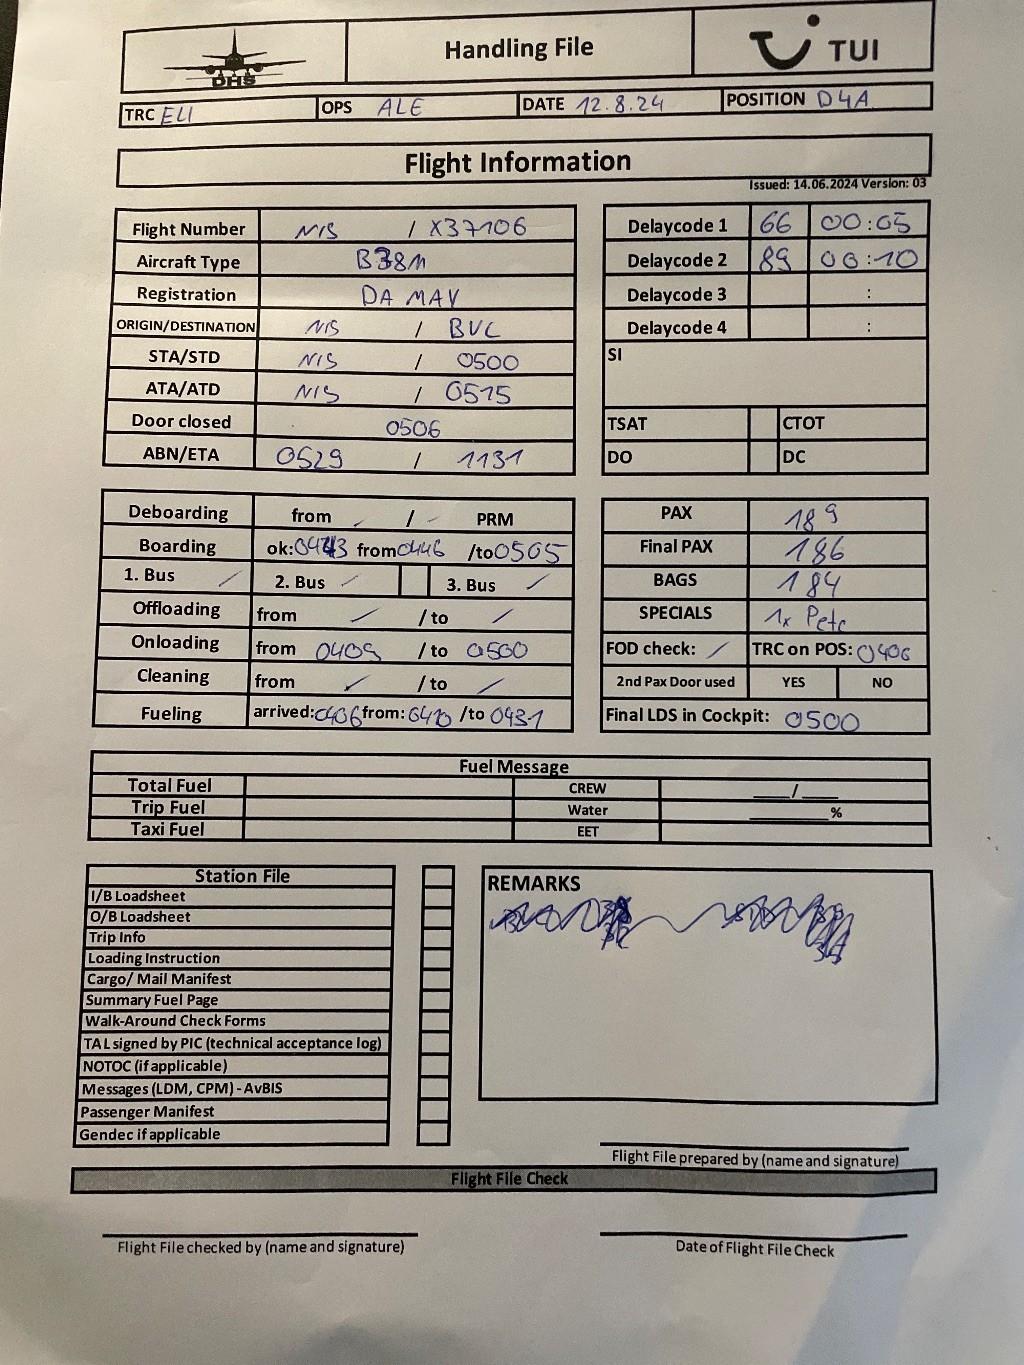 DHS Handling File TUI
TRC ELI OPS ALE DATE 12.8.24 POSITION D4A
Flight Information
Issued: 14.06.2024 Version: 03
Flight Number NIS / X37106
Aircraft Type B38M
Registration DA MAV
ORIGIN/DESTINATION NIS / BVC
STA/STD NIS / 0500
ATA/ATD NIS / 0515
Door closed 0506
ABN/ETA 0529 / 1131
Delaycode 1 66 00:05
Delaycode 2 89 00:10
Delaycode 3 :
Delaycode 4 :
SI
TSAT CTOT
DO DC
Deboarding from / PRM
Boarding ok: 0443 from 0446 /to 0505
1. Bus 2. Bus 3. Bus
Offloading from / to
Onloading from 0409 / to 0500
Cleaning from / to
Fueling arrived: 0406 from: 0410 /to 0431
PAX 189
Final PAX 186
BAGS 184
SPECIALS 1x Petc
FOD check: TRC on POS: 0406
2nd Pax Door used YES NO
Final LDS in Cockpit: 0500
Fuel Message
Total Fuel CREW ___/___
Trip Fuel Water ______%
Taxi Fuel EET
Station File
I/B Loadsheet
O/B Loadsheet
Trip Info
Loading Instruction
Cargo/ Mail Manifest
Summary Fuel Page
Walk-Around Check Forms
TAL signed by PIC (technical acceptance log)
NOTOC (if applicable)
Messages (LDM, CPM) - AvBIS
Passenger Manifest
Gendec if applicable
REMARKS
Flight File prepared by (name and signature)
Flight File Check
Flight File checked by (name and signature)
Date of Flight File Check